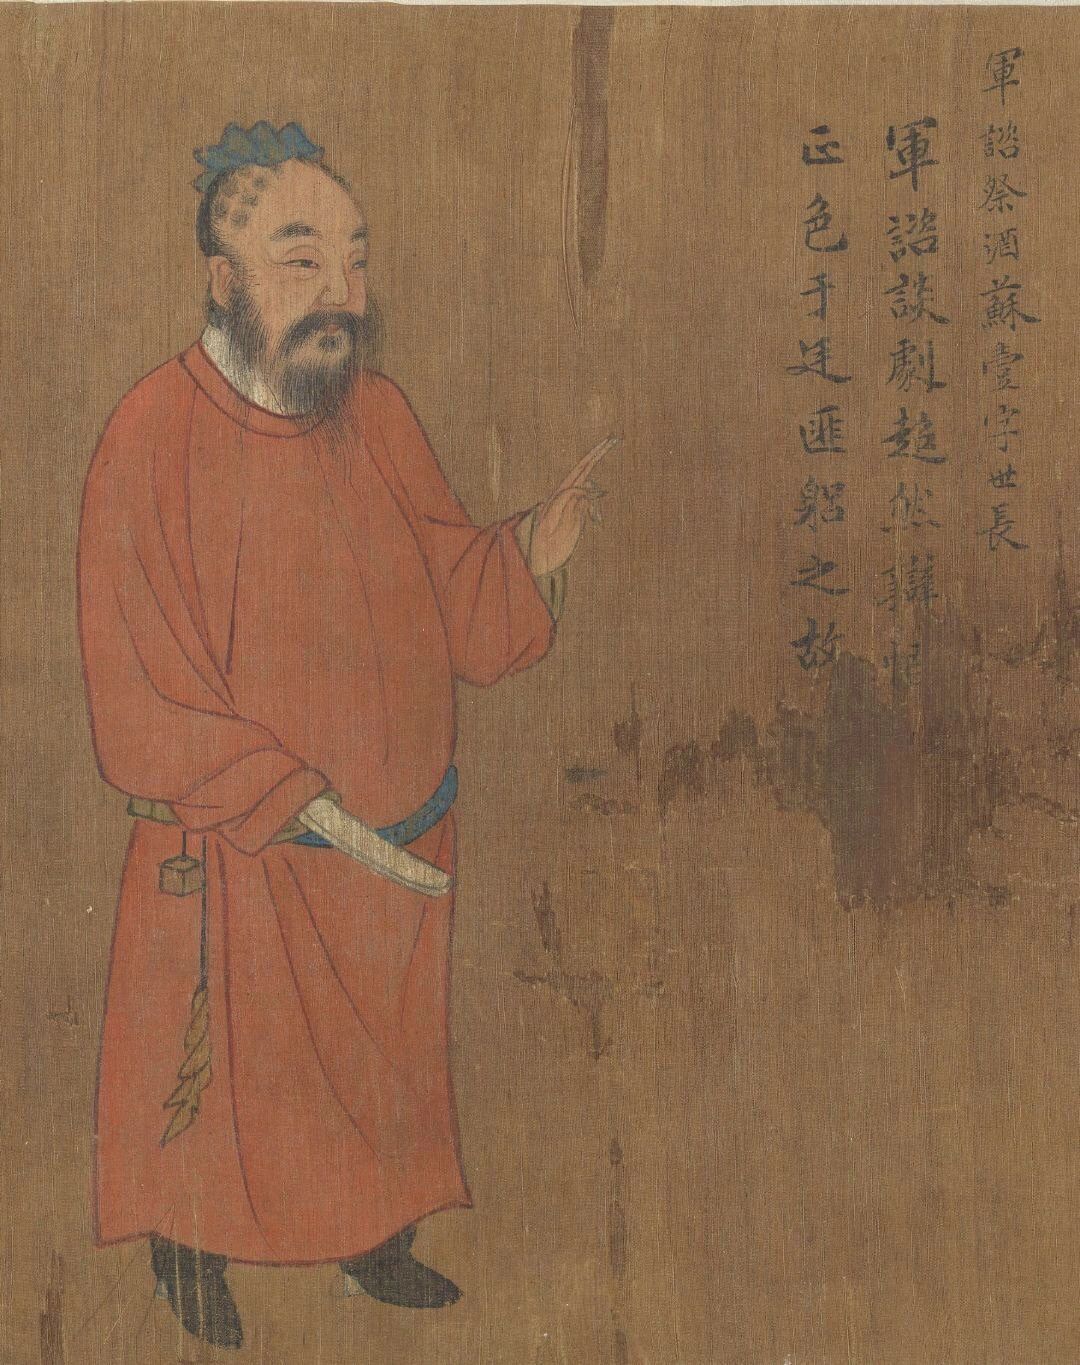 軍諮祭酒蘇壹字世長
軍諮談劇超然辯
正色于廷匪躳之故